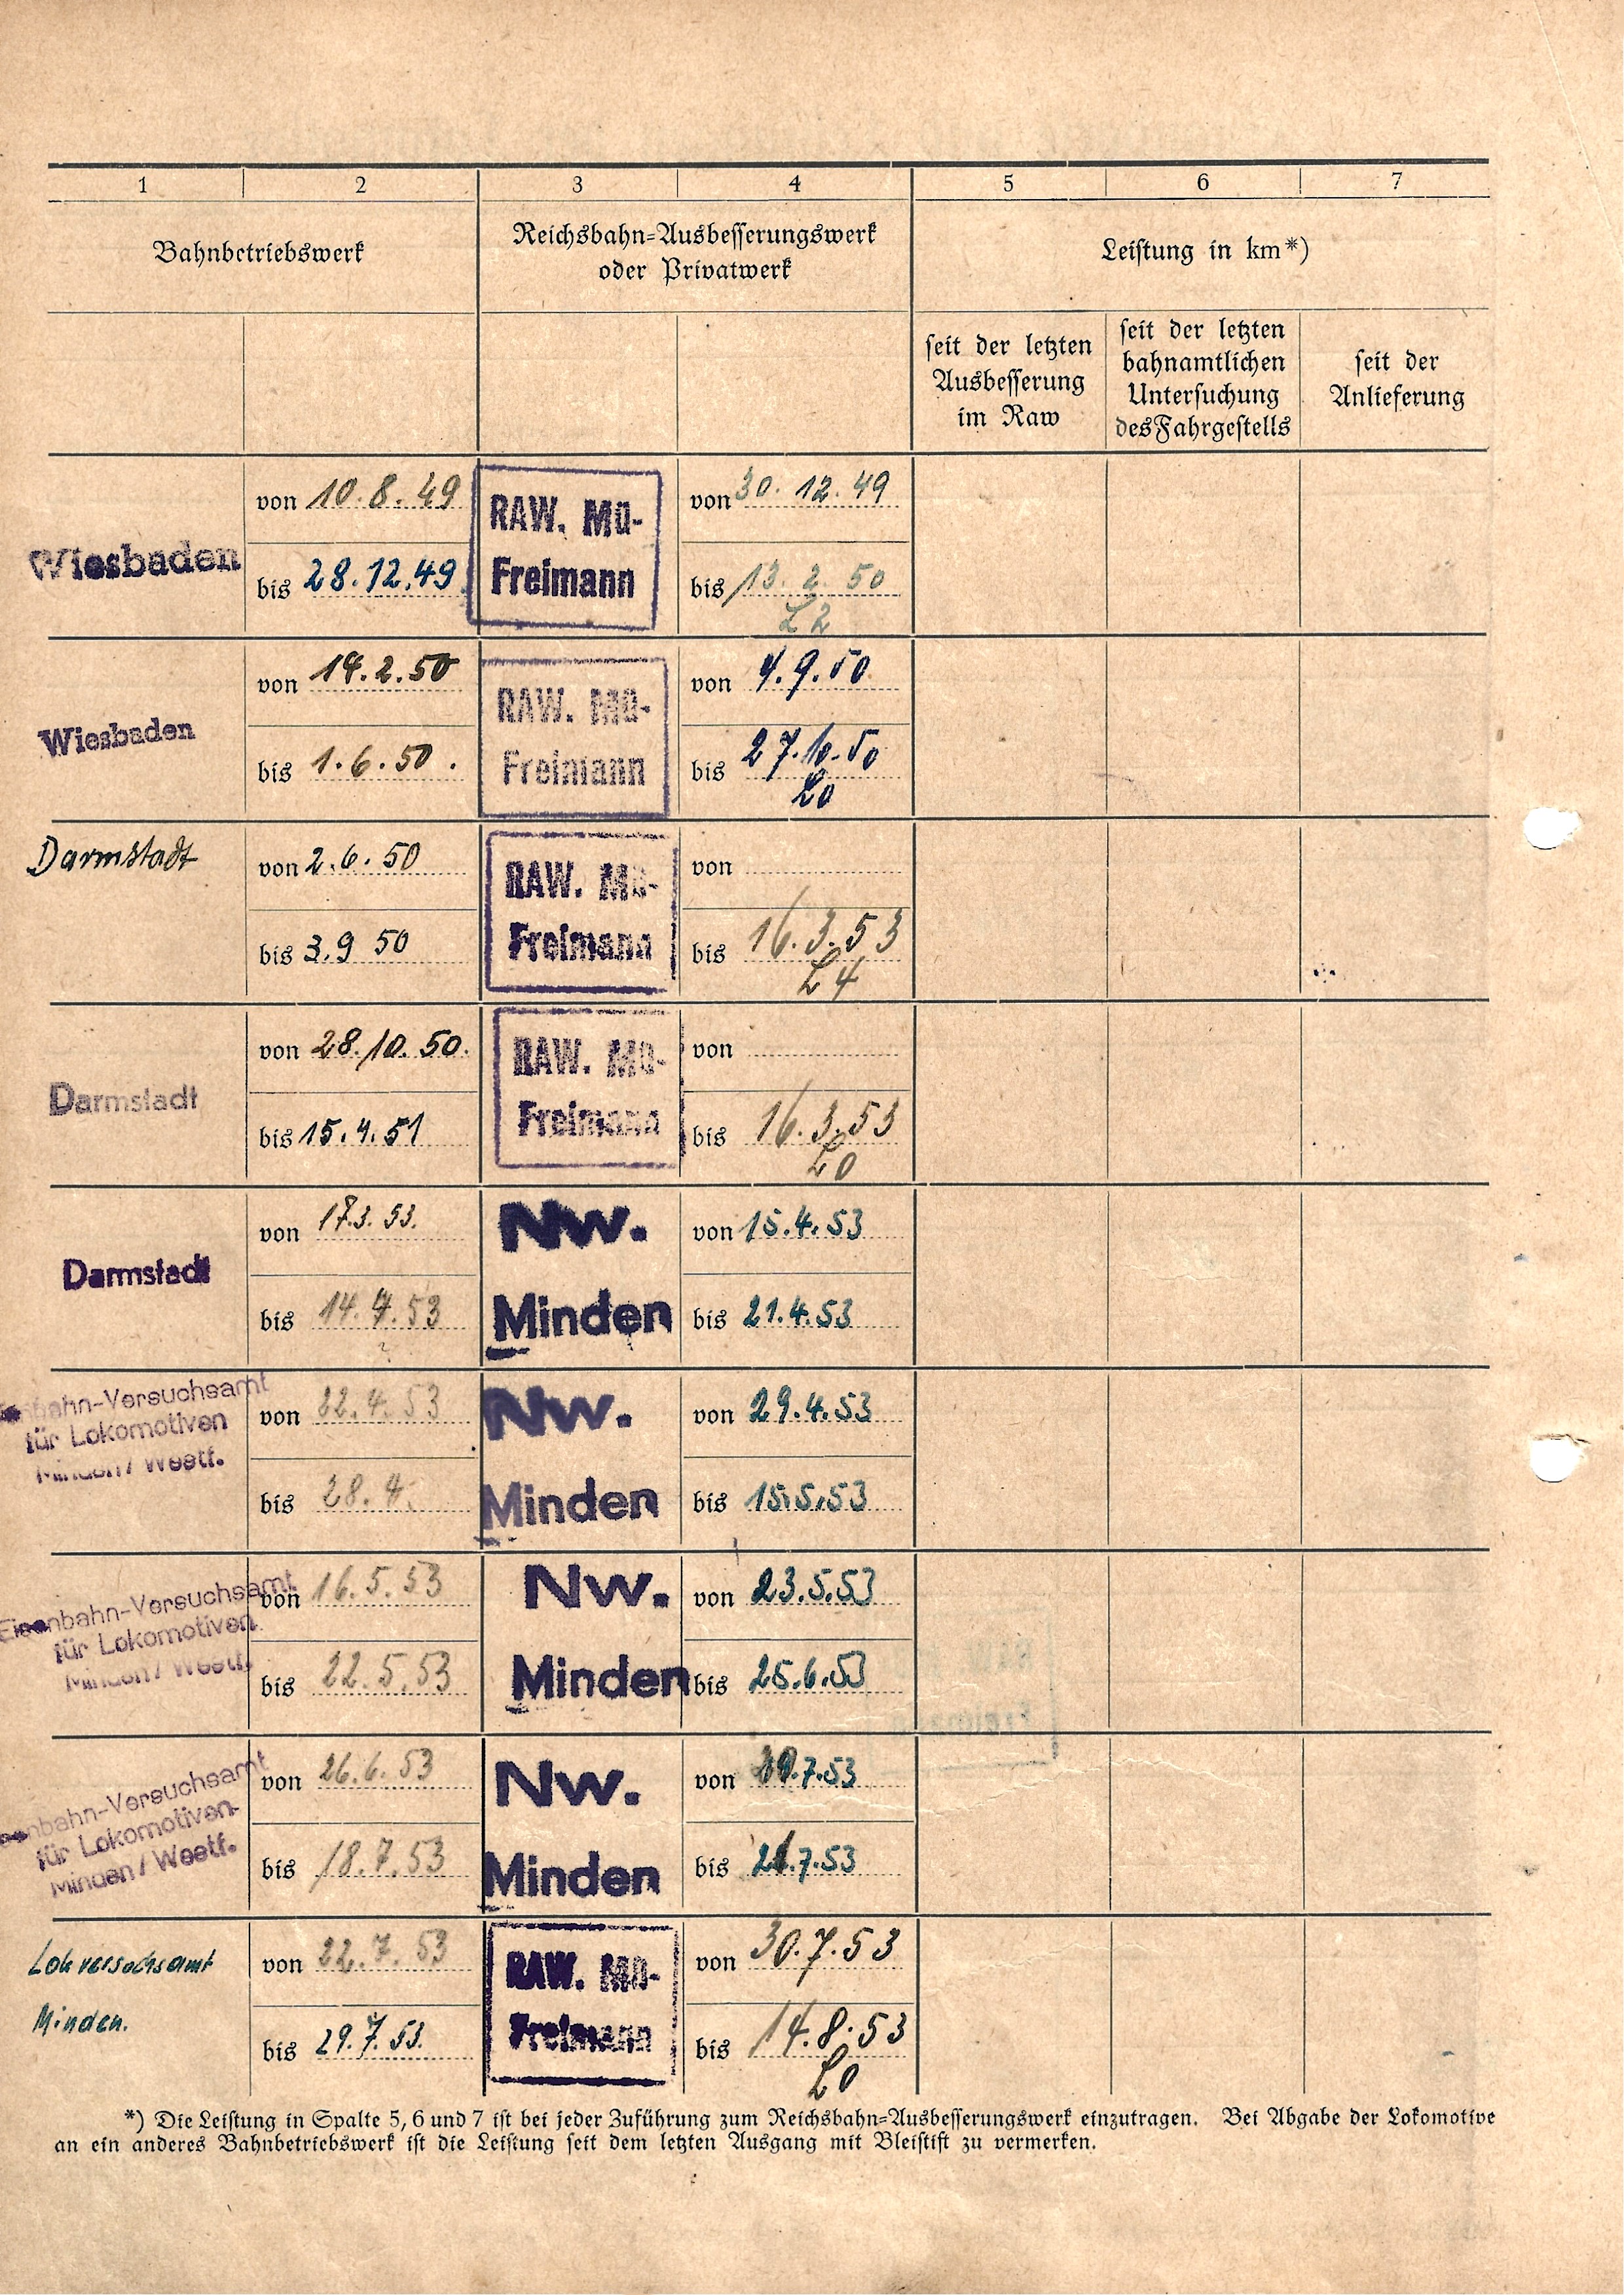 1 2 3 4 5 6 7
Bahnbetriebswerk
Reichsbahn-Ausbesserungswerk
oder Privatwerk
Leistung in km*)
seit der letzten
Ausbesserung
im Raw
seit der letzten
bahnamtlichen
Untersuchung
des Fahrgestells
seit der
Anlieferung
Wiesbaden
von 10.8.49
bis 28.12.49
RAW. Mü-
Freimann
von 30.12.49
bis 13.2.50
L2
Wiesbaden
von 14.2.50
bis 1.6.50.
RAW. Mü-
Freimann
von 4.9.50
bis 27.10.50
L0
Darmstadt
von 2.6.50
bis 3.9 50
RAW. Mü-
Freimann
von
bis 16.3.53
L4
Darmstadt
von 28.10.50.
bis 15.4.51
RAW. Mü-
Freimann
von
bis 16.3.53
L0
Darmstadt
von 17.3.53.
bis 14.4.53
Nw.
Minden
von 15.4.53
bis 21.4.53
Eisenbahn-Versuchsamt
für Lokomotiven
Minden/Westf.
von 22.4.53
bis 28.4.
Nw.
Minden
von 29.4.53
bis 15.5.53
Eisenbahn-Versuchsamt
für Lokomotiven
Minden/Westf.
von 16.5.53
bis 22.5.53
Nw.
Minden
von 23.5.53
bis 25.6.53
Eisenbahn-Versuchsamt
für Lokomotiven
Minden/Westf.
von 26.6.53
bis 18.7.53
Nw.
Minden
von .7.53
bis 21.7.53
Lokversuchsamt
Minden.
von 22.7.53
bis 29.7.53.
RAW. Mü-
Freimann
von 30.7.53
bis 14.8.53
L0
*) Die Leistung in Spalte 5, 6 und 7 ist bei jeder Zuführung zum Reichsbahn-Ausbesserungswerk einzutragen. Bei Abgabe der Lokomotive
an ein anderes Bahnbetriebswerk ist die Leistung seit dem letzten Ausgang mit Bleistift zu vermerken.